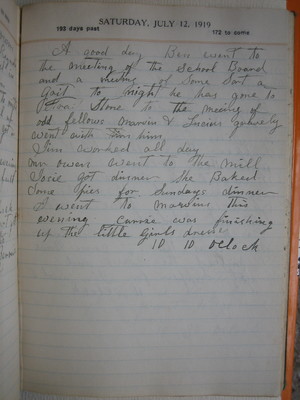 SATURDAY, JULY 12, 1919
193 days past 172 to come
A good day Ben went to
the meeting of the School Board
and a meeting of Some Sort a
to night he has gone to
Stone to the meeting of
odd fellows Marvin & Lucius
went with him
Jim worked all day
van owens went to the mill
Josie got dinner She Baked
Some Pies for Sundays dinner
I went to Marvins This
evening Carrie was finishing
up the little Girls dress
10 10 oclock